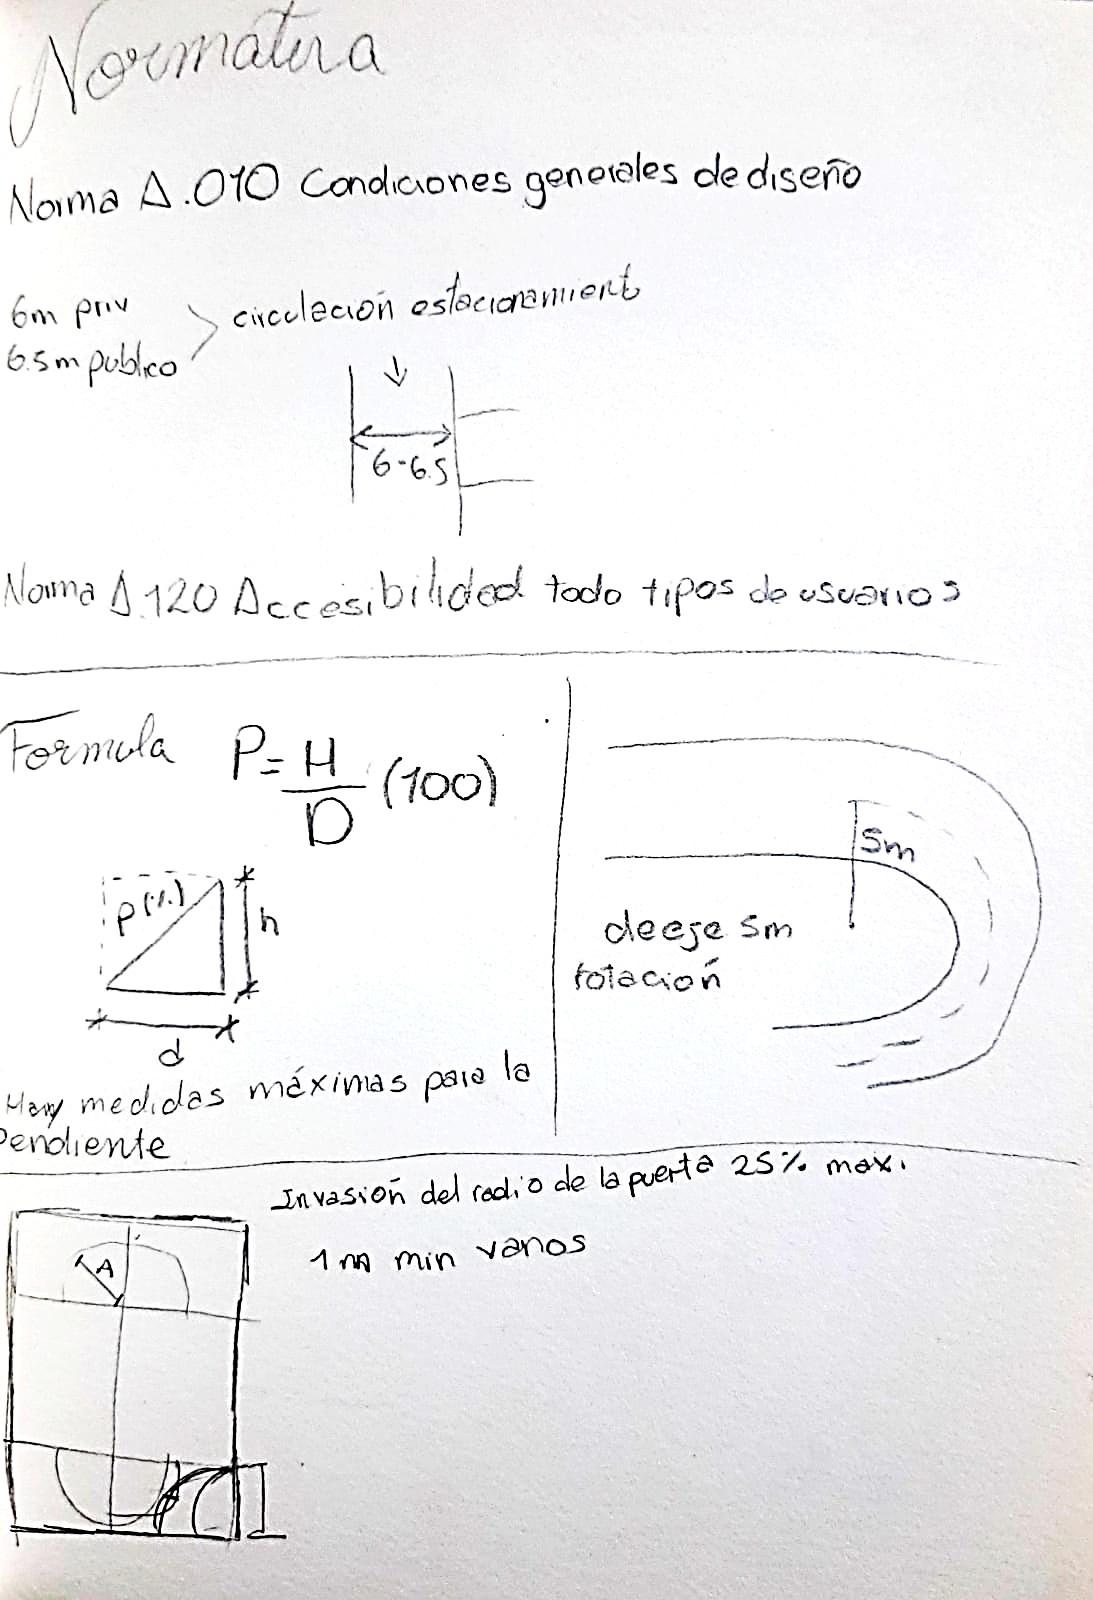 Normativa
Norma A.010 Condiciones generales de diseño
6m priv
6.5m publico
circulación estacionamiento
6-6.5
Norma A.120 Accesibilidad todo tipos de usuarios
Formula P=H/D (100)
P(%)
h
d
Hay medidas máximas para la
Pendiente
5m
de eje 5m
rotación
Invasión del radio de la puerta 25% max.
1m min vanos
A